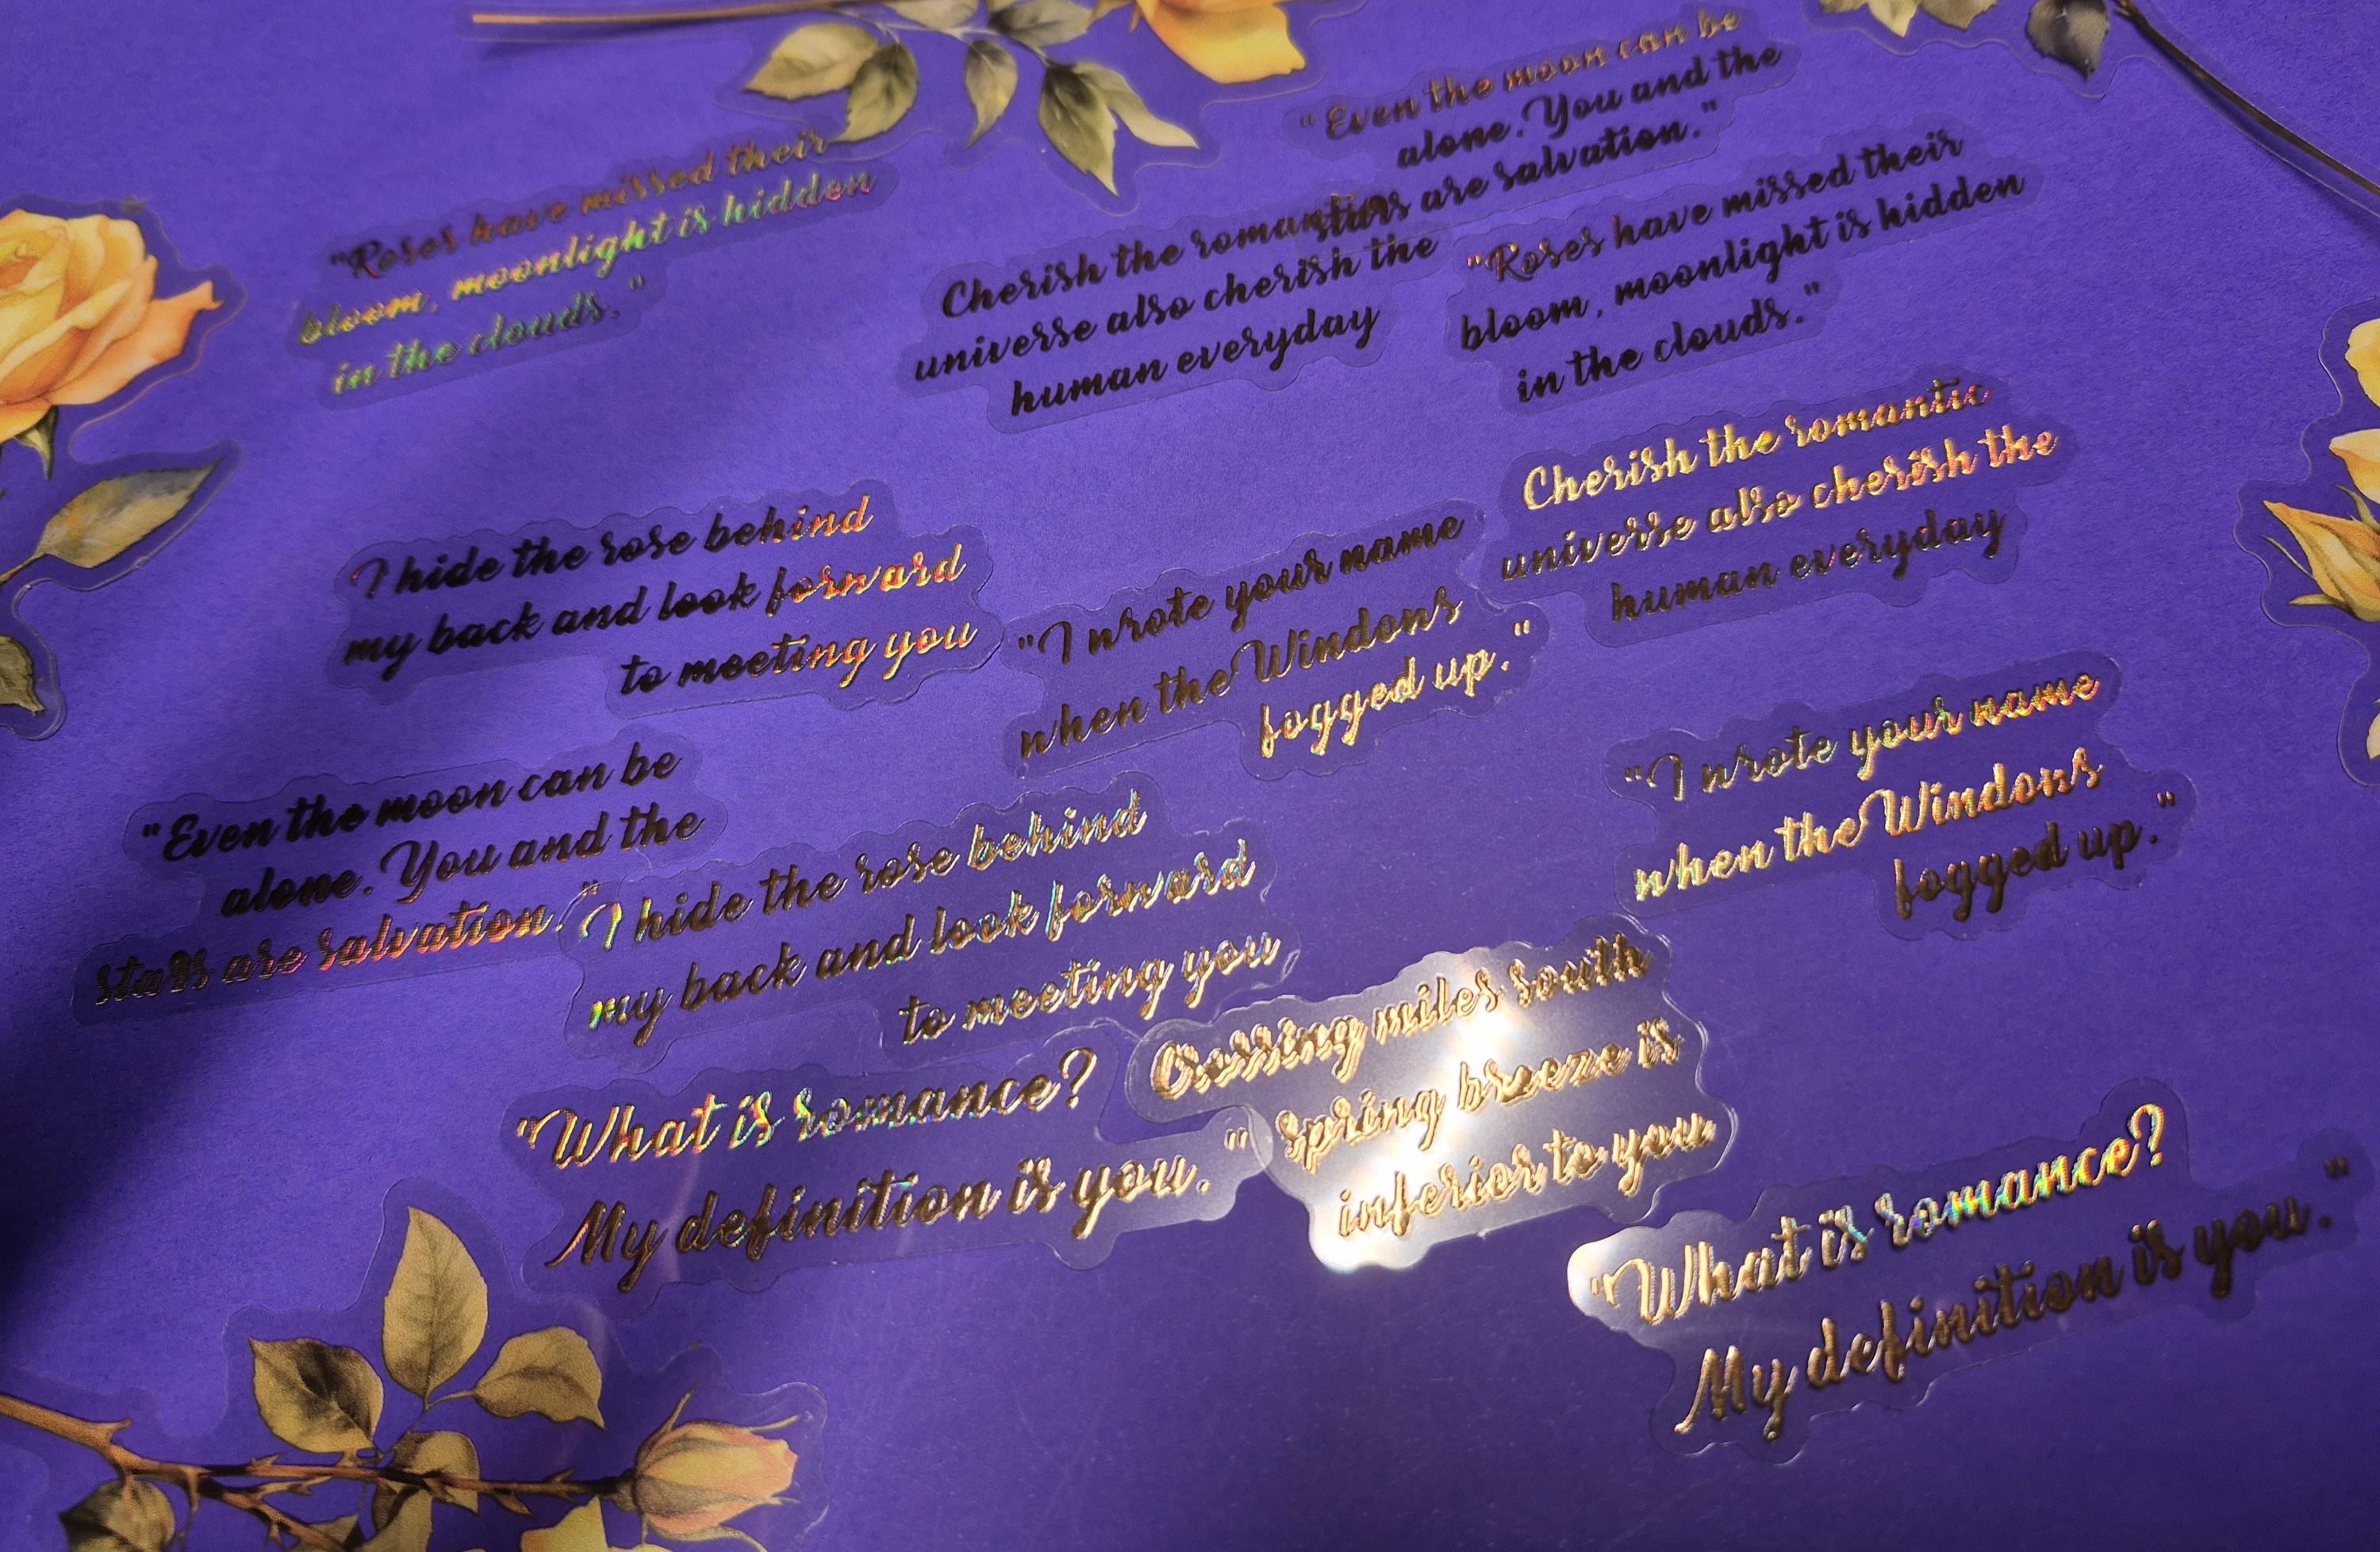 "Even the moon can be
alone. You and the
stars are salvation."
"Roses have missed their
bloom, moonlight is hidden
in the clouds. "
Cherish the romantic
universe also cherish the
human everyday
"Roses have missed their
bloom, moonlight is hidden
in the clouds."
Cherish the romantic
universe also cherish the
human everyday
I hide the rose behind
my back and look forward
to meeting you
"I wrote your name
when the Windows
fogged up."
"I wrote your name
when the Windows
fogged up."
"Even the moon can be
alone. You and the
stars are salvation."
I hide the rose behind
my back and look forward
to meeting you
Crossing miles south
spring breeze is
inferior to you
"What is romance?
My definition is you."
"What is romance?
My definition is you."